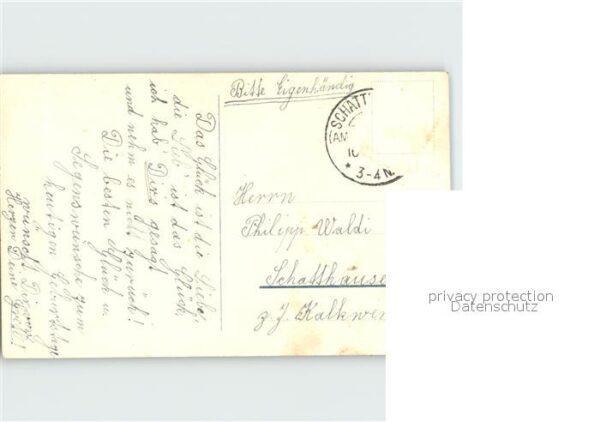 Bitte Eigenhändig
SCHATT
(AM
10
* 3-4N.
Herrn
Philipp Waldi
Schatthause
z. J. Kalkwe
Das Glück ist die Liebe,
die Lieb' ist das Glück,
ich hab' Dir's gesagt
und nehm es nicht zurück!
Die besten Glück u.
Segenswünsche zum
heutigen Geburtstage
wünscht Dir von
Herzen Deine
privacy protection
Datenschutz